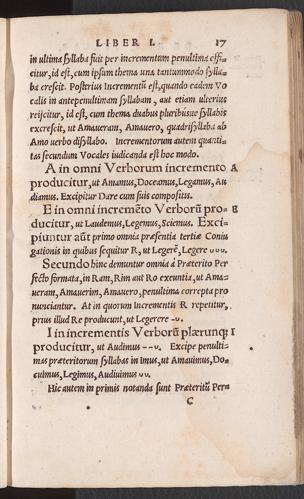 LIBER I. 17
in ultima syllaba sicut per incrementum penultima effi-
citur, id est, cum ipsum thema una tantummodo sylla-
ba crescit. Posterius Incrementũ est, quando eadem Vo
calis in antepenultimam syllabam, aut etiam ulterius
reijcitur, id est, cum thema duabus pluribúsue syllabis
excrescit, ut Amaueram, Amauero, quadrisyllaba ab
Amo uerbo disyllabo. Incrementorum autem quanti-
tas secundum Vocales iudicanda est hoc modo.
A in omni Verborum incremento A
producitur, ut Amamus, Doceamus, Legamus, Au-
diamus. Excipitur Dare cum suis compositis.
E in omni incremẽto Verborũ pro- E
ducitur, ut Laudemus, Legemus, Sciemus. Exci-
piuntur aũt primo omnia præsentia tertiæ Coniu
gationis in quibus sequitur R, ut Legerẽ, Legere ᴗᴗᴗ.
Secundo hinc demuntur omnia à Præterito Per
fecto formata, in Ram, Rim aut Ro exeuntia, ut Ama-
ueram, Amauerim, Amauero, penultima correpta pro
nunciantur. At in quorum Incrementis R repetitur,
prius illud Re producunt, ut Legerere -ᴗ.
I in incrementis Verborũ plærunq; I
producitur, ut Audimus --ᴗ. Excipe penulti-
mas præteritorum syllabas in imus, ut Amauimus, Do-
cuimus, Legimus, Audiuimus ᴗᴗ.
Hic autem in primis notanda sunt Præteritũ Per=
C